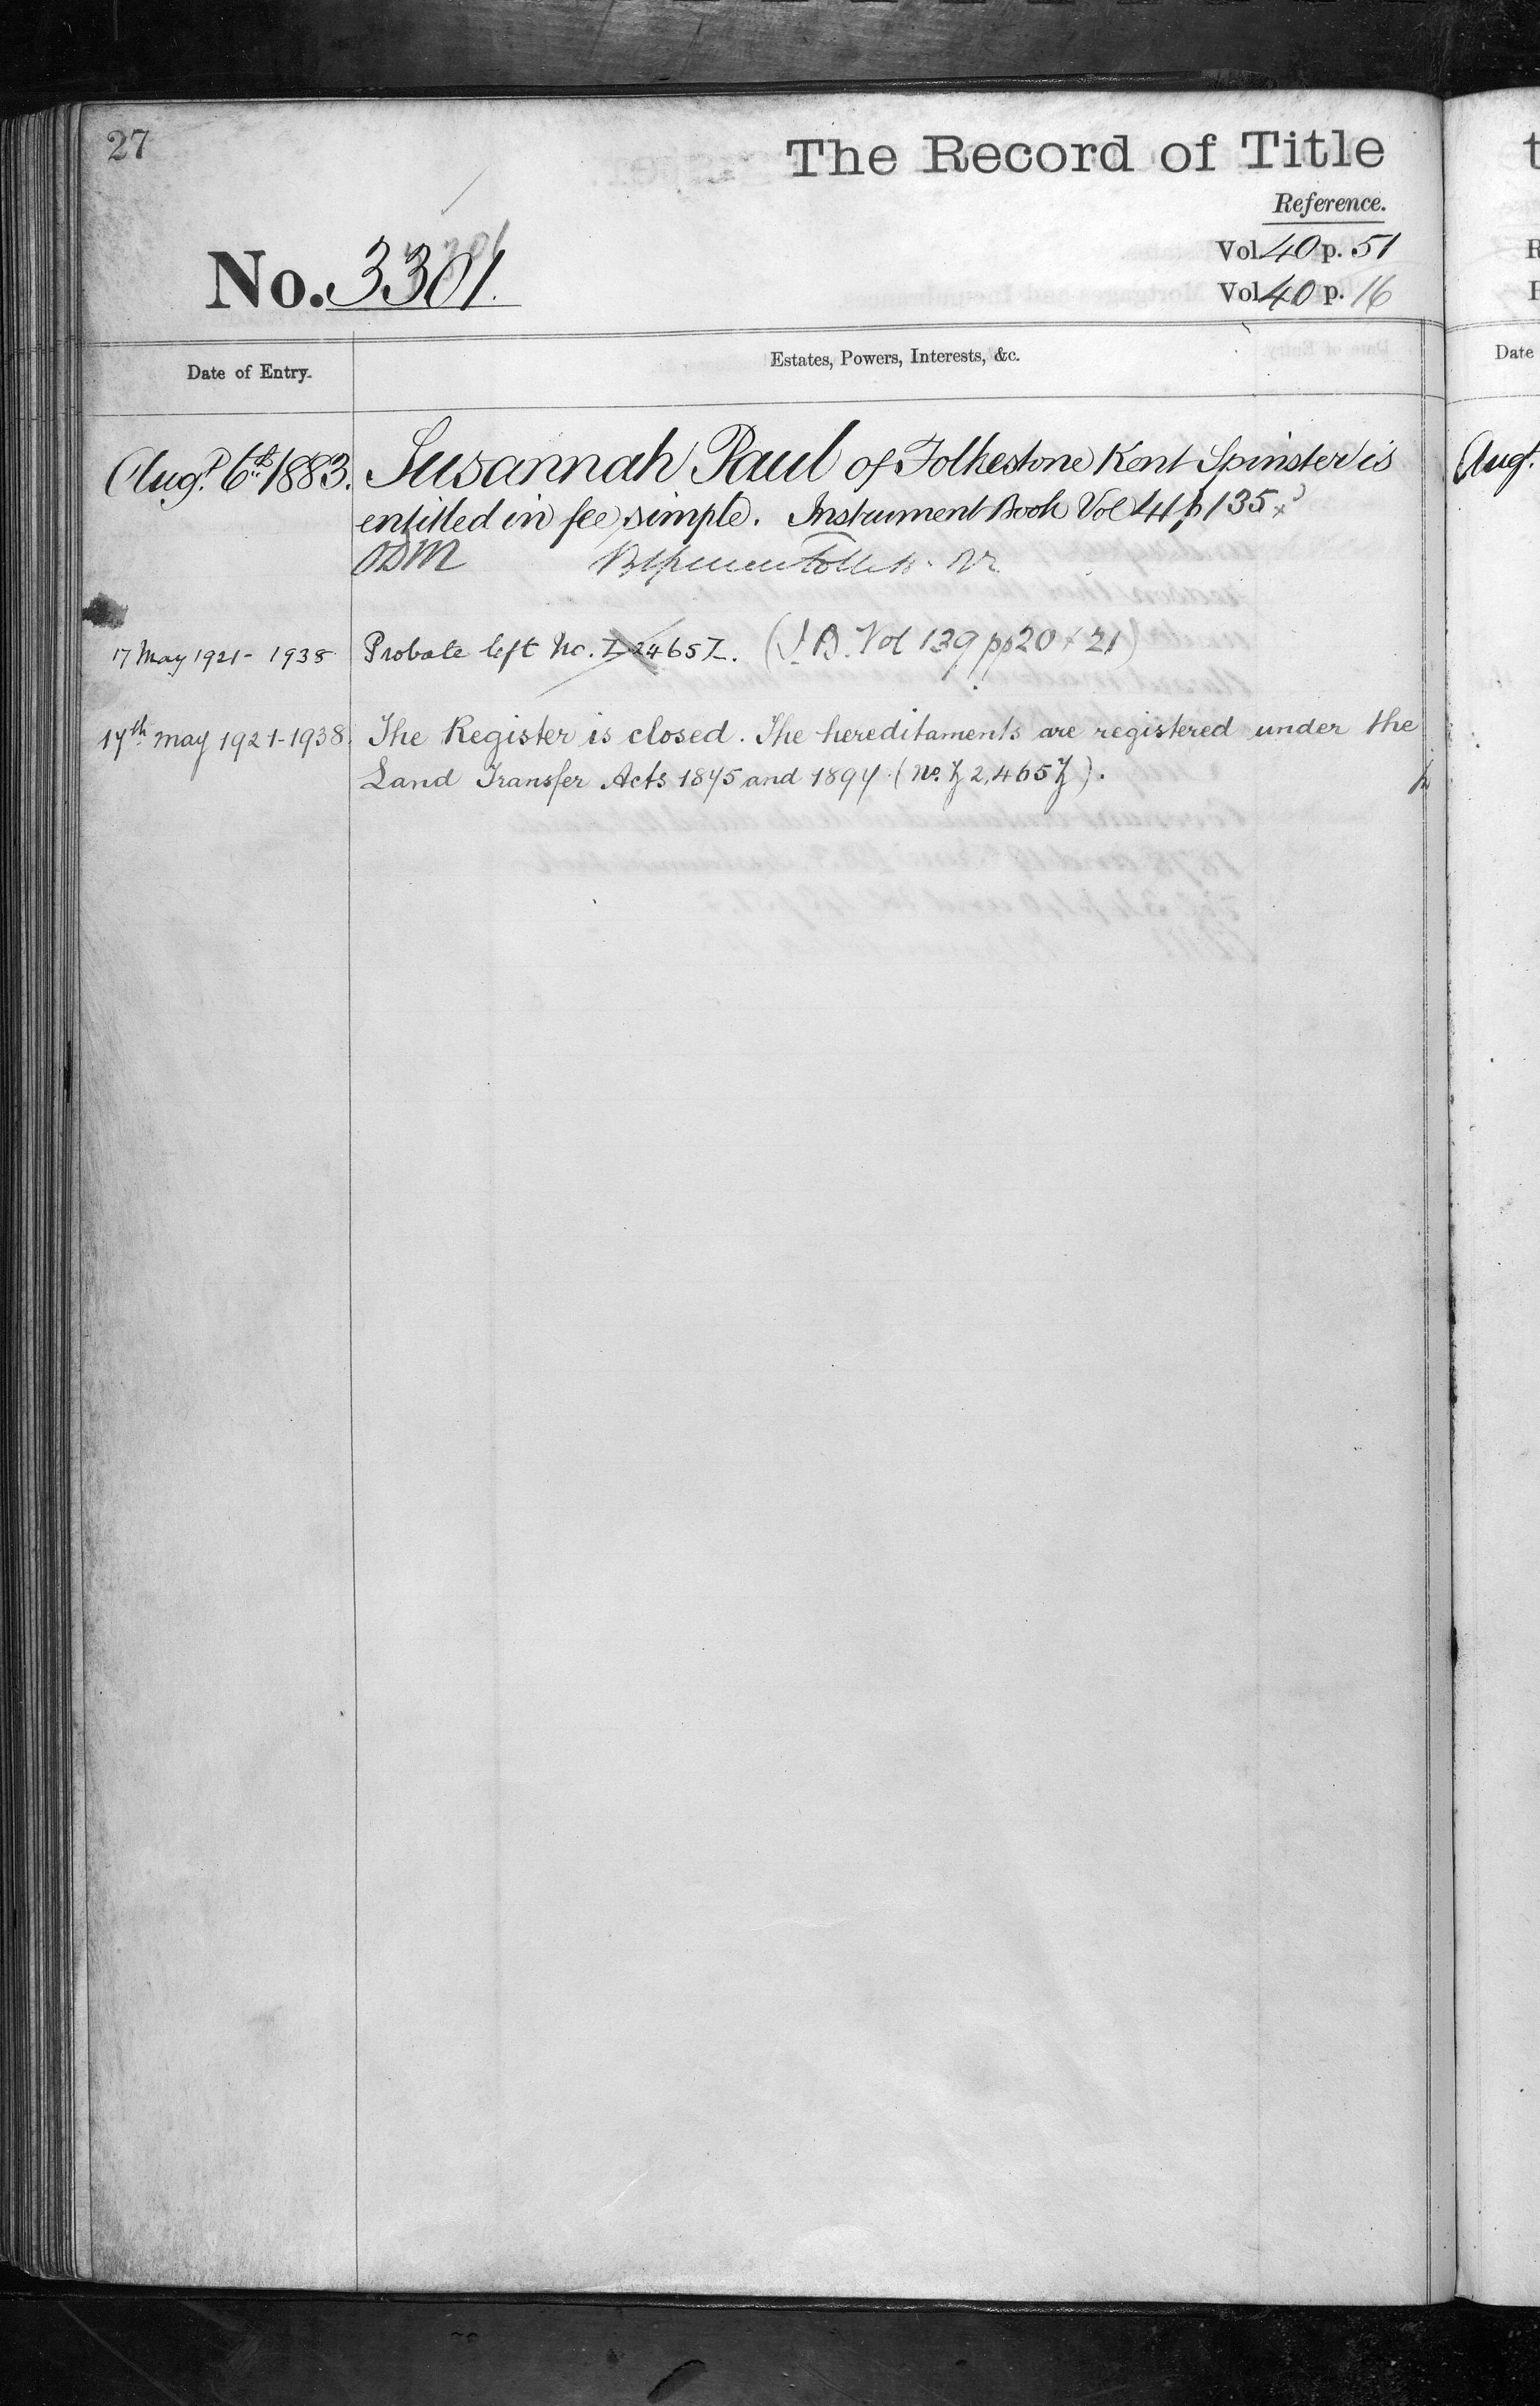 27
The Record of Title
Reference.
No. 3301.
Vol. 40 p. 51
Vol. 40 p. 16
Date of Entry.
Estates, Powers, Interests, &c.
Augt. 6th 1883. Susannah Paul of Folkestone Kent Spinster is
entitled in fee simple. Instrument Book Vol 41 p 135.
ODM
17 May 1921 - 1938 Probate left No. Z 2465 Z. (I.B. Vol 139 pp 20 & 21)
17th May 1921-1938. The Register is closed. The hereditaments are registered under the
Land Transfer Acts 1875 and 1897 (No. Z 2,465 Z).
Date
Augt.